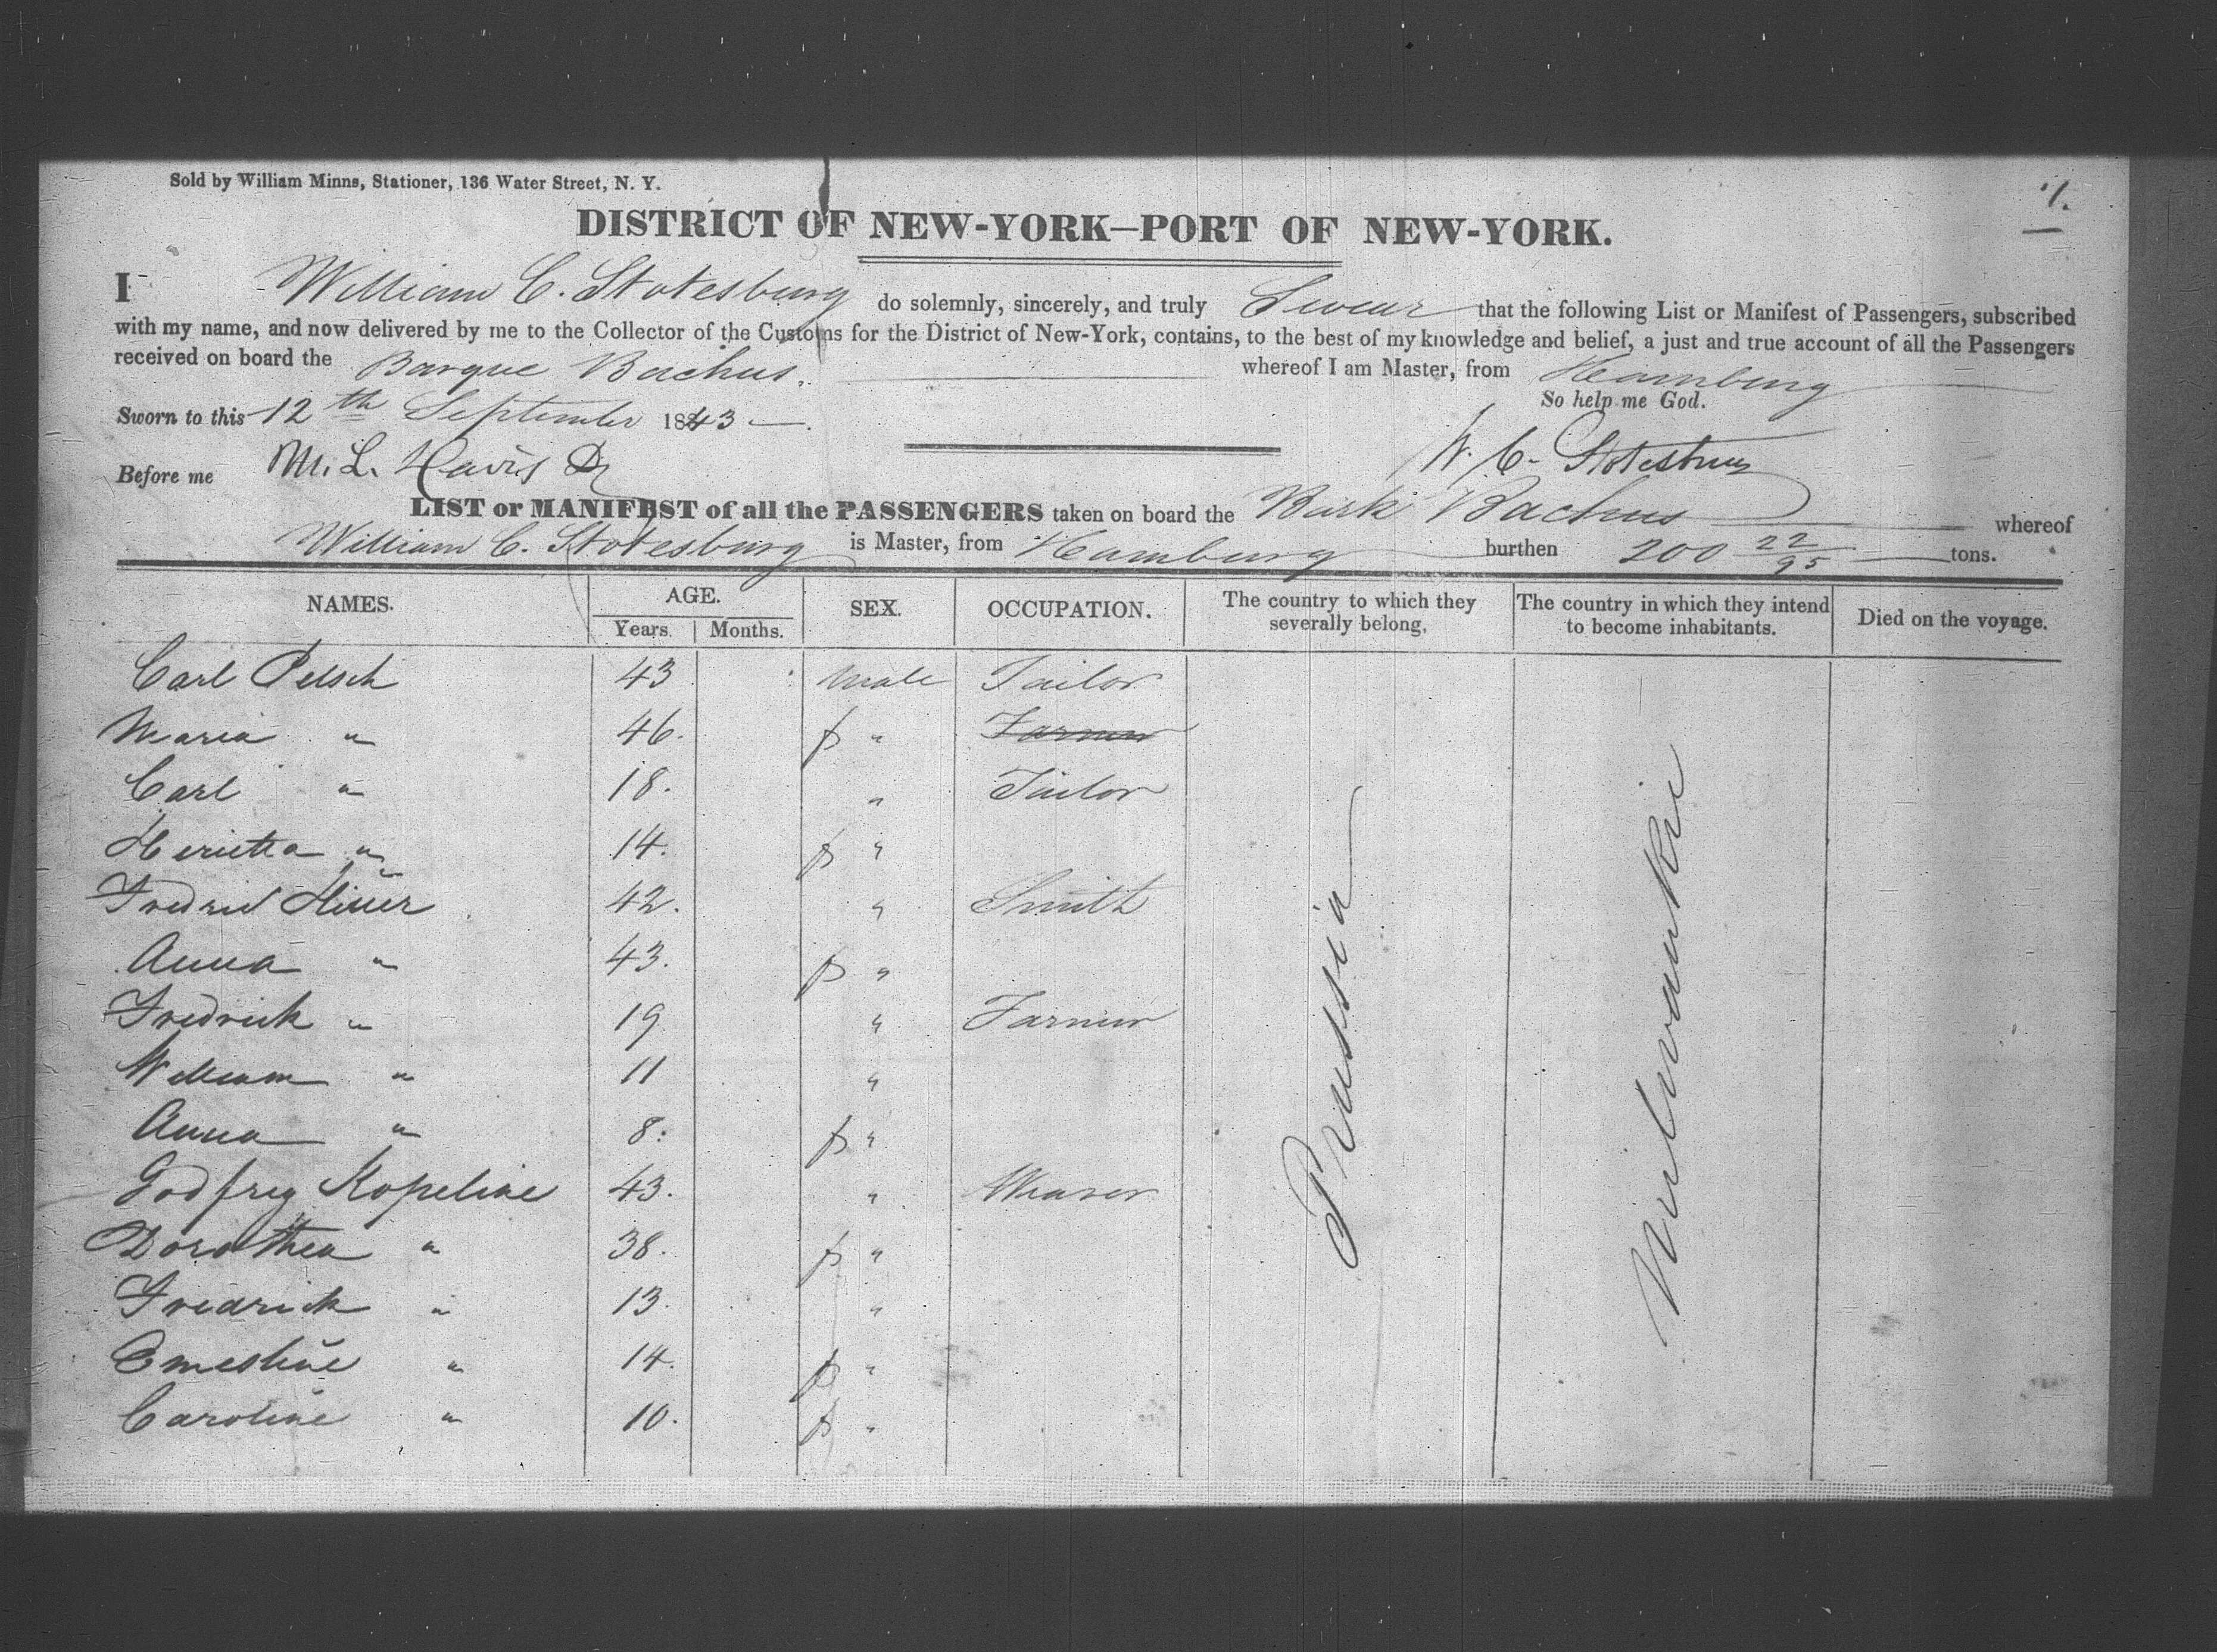 Sold by William Minns, Stationer, 136 Water Street, N. Y.
1.
DISTRICT OF NEW-YORK—PORT OF NEW-YORK.
I William C. Stotesbury do solemnly, sincerely, and truly Swear that the following List or Manifest of Passengers, subscribed
with my name, and now delivered by me to the Collector of the Customs for the District of New-York, contains, to the best of my knowledge and belief, a just and true account of all the Passengers
received on board the Barque Bachus. whereof I am Master, from Hamburg
So help me God.
Sworn to this 12th September 1843
W. C. Stotesbury
Before me M. L. Davis
LIST or MANIFEST of all the PASSENGERS taken on board the Bark Bachus whereof
William C. Stotesburg is Master, from Hamburg burthen 200 22/95 tons.
NAMES. AGE. Years. Months. SEX. OCCUPATION. The country to which they severally belong. The country in which they intend to become inhabitants. Died on the voyage.
Carl Pelsch 43 Male Tailor
Maria " 46. f " Farmer
Carl " 18. " Tailor
Herietta " 14. f "
Fredrick 42. " Smith
Anna " 43. f "
Fredrick " 19. " Farmer
William " 11 "
Anna " 8. f "
Godfrey Kopeline 43. " Weaver
Dorothea " 38. f "
Fredrick " 13. "
Ernestine " 14. f "
Caroline " 10. f "
Prussia
Milwaukie